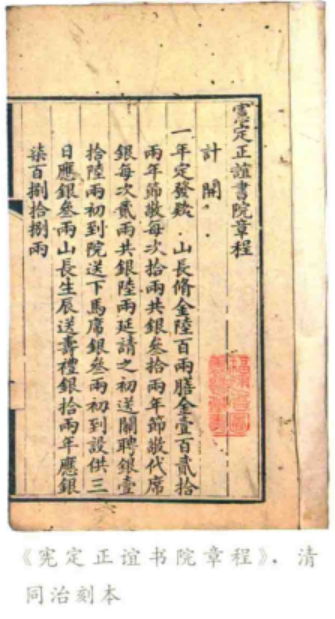 憲定正誼書院章程
計開
一年定發欵．山長脩金陸百兩膳金壹百貳拾
兩年節敬每次拾兩共銀叁拾兩年節敬代席
銀每次貳兩共銀陸兩延請之初送關聘銀壹
拾陸兩初到院送下馬席銀叁兩初到設供三
日應銀叁兩山長生辰送壽禮銀拾兩年應銀
柒百捌拾捌兩
《宪定正谊书院章程》，清
同治刻本